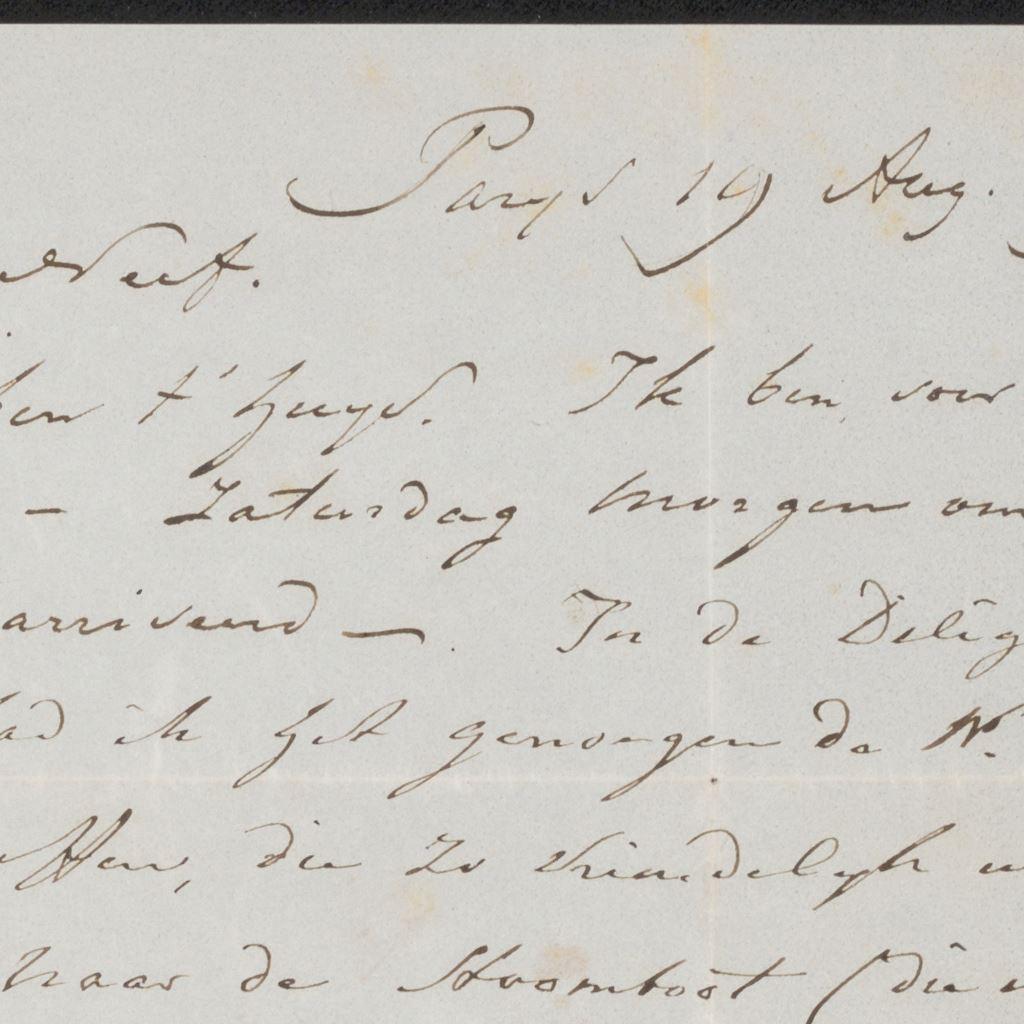 Parys 19 Aug.
Neef.
t' huys. Ik ben voor
– Zaturdag morgen om
arriveerd – In de Dilig
had ik het genoegen de W.
die zo vriendelyk
naar de Stoomboot (die